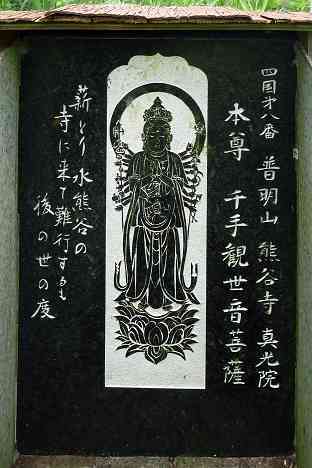 四国第八番 普明山 熊谷寺 真光院
本尊 千手観世音菩薩
薪とり水熊谷の
寺に来て難行するも
後の世の度